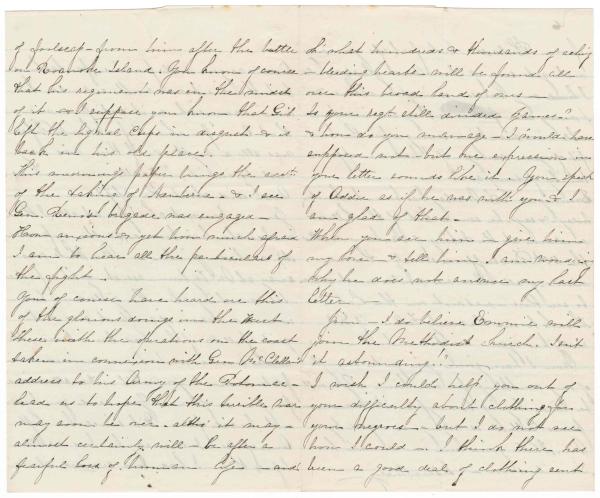 of foolscap - from him after the battle
on Roanoke Island. You know of course
that his regiment was in the midst
of it - & I suppose you know that Gil
left the Signal Corps in august & is
back in his old place.
This morning's paper brings the acct
of the taking of Newberne - & I see
Gen. Reno's brigade was engaged -
How anxious & yet how much afraid
I am to hear all the particulars of
the fight.
You of course have heard ere this
of the glorious doings in the West.
these with the operations on the coast
taken in connexion with Gen McClellan's
address to his Army of the Potomac -
leads us to hope that this terrible war
may soon be over - altho it may -
almost certainly will - be after a
fearful loss of human life - and
Oh what hundreds & thousands of aching
- bleeding hearts - will be found all
over this broad land of ours -
Is your regt still divided James?
& how do you manage - I would have
supposed not - but one expression in
your letter sounds like it. You speak
of Addie as if he was with you & I
am glad of that -
When you see him - give him
my love - & tell him I am wondering
why he does not answer my last
letter -
Jim - I do believe Emmie will
join the Methodist Church. Isn't
it astounding!!
I wish I could help you out of
your difficulty about clothing for
your negroes - but I do not see
how I could - I think there has
been a good deal of clothing sent